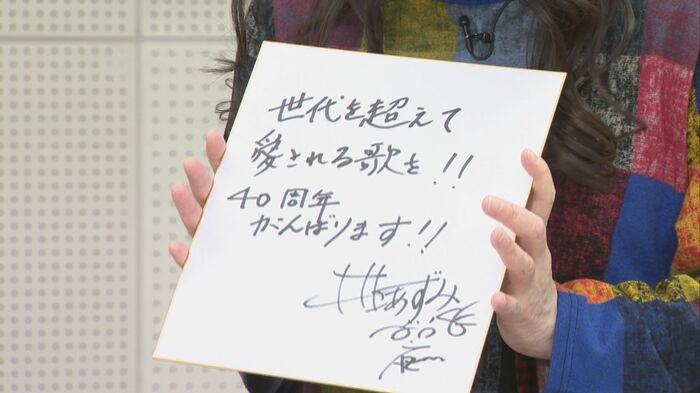 世代を超えて
愛される歌を!!
40周年
がんばります!!
あずみ